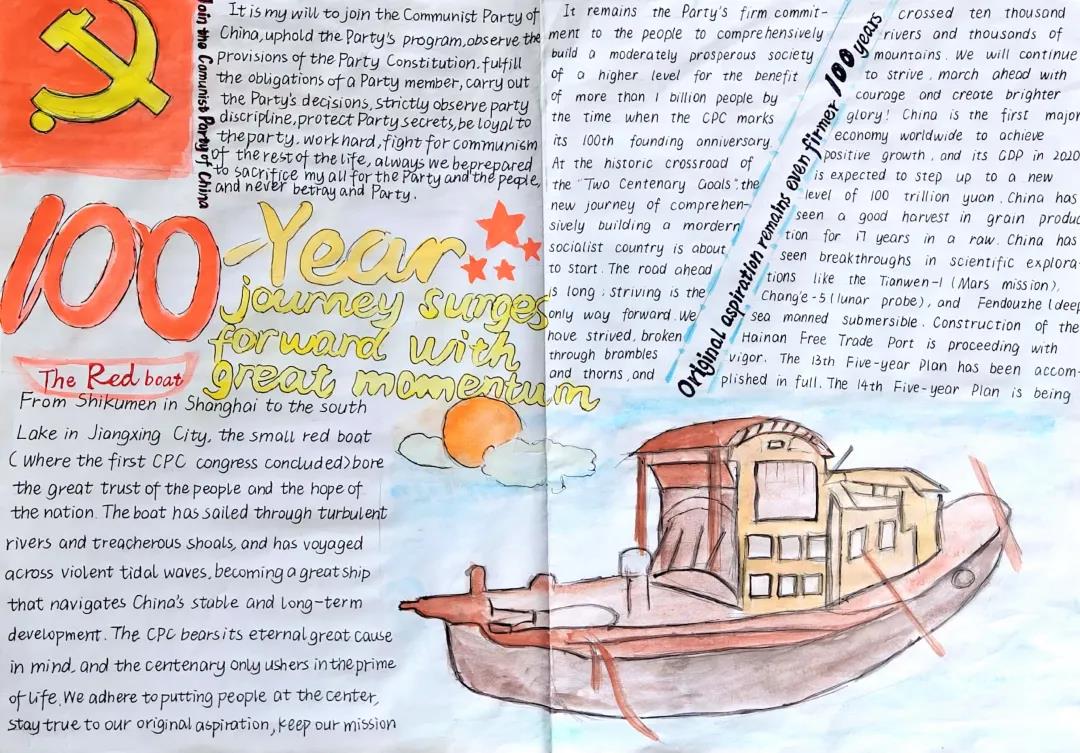 Join the Comunist Party of China
It is my will to join the Communist Party of
China, uphold the Party's program, observe the
provisions of the Party Constitution. fulfill
the obligations of a Party member, carry out
the Party's decisions, strictly observe party
discipline, protect Party secrets, be loyal to
the party. work hard, fight for communism
of the rest of the life, always we be prepared
to sacrifice my all for the Party and the people,
and never betray and Party.
100
-Year
journey surges
forward with
great momentum
The Red boat
From Shikumen in Shanghai to the south
Lake in Jiangxing City, the small red boat
( Where the first CPC congress concluded) bore
the great trust of the people and the hope of
the nation. The boat has sailed through turbulent
rivers and treacherous shoals, and has voyaged
across violent tidal waves, becoming a great ship
that navigates China's stable and long-term
development. The CPC bears its eternal great cause
in mind, and the centenary only ushers in the prime
of life. We adhere to putting people at the center,
stay true to our original aspiration, keep our mission
It remains the Party's firm commit-
ment to the people to comprehensively
build a moderately prosperous society
of a higher level for the benefit
of more than 1 billion people by
the time when the CPC marks
its 100th founding anniversary.
At the historic crossroad of
the "Two Centenary Goals". the
new journey of comprehen-
sively building a mordern
socialist country is about
to start. The road ahead
is long; striving is the
only way forward. We
have strived, broken
through brambles
and thorns, and
Original aspiration remains even firmer 100 years
crossed ten thousand
rivers and thousands of
mountains. We will continue
to strive, march ahead with
courage and create brighter
glory! China is the first major
economy worldwide to achieve
positive growth, and its GDP in 2020
is expected to step up to a new
level of 100 trillion yuan. China has
seen a good harvest in grain produc
tion for 17 years in a raw. China has
seen breakthroughs in scientific explora-
tions like the Tianwen-1 (Mars mission),
Chang'e-5 (lunar probe), and Fendouzhe (deep
sea manned submersible. Construction of the
Hainan Free Trade Port is proceeding with
vigor. The 13th Five-year Plan has been accom-
plished in full. The 14th Five-year Plan is being